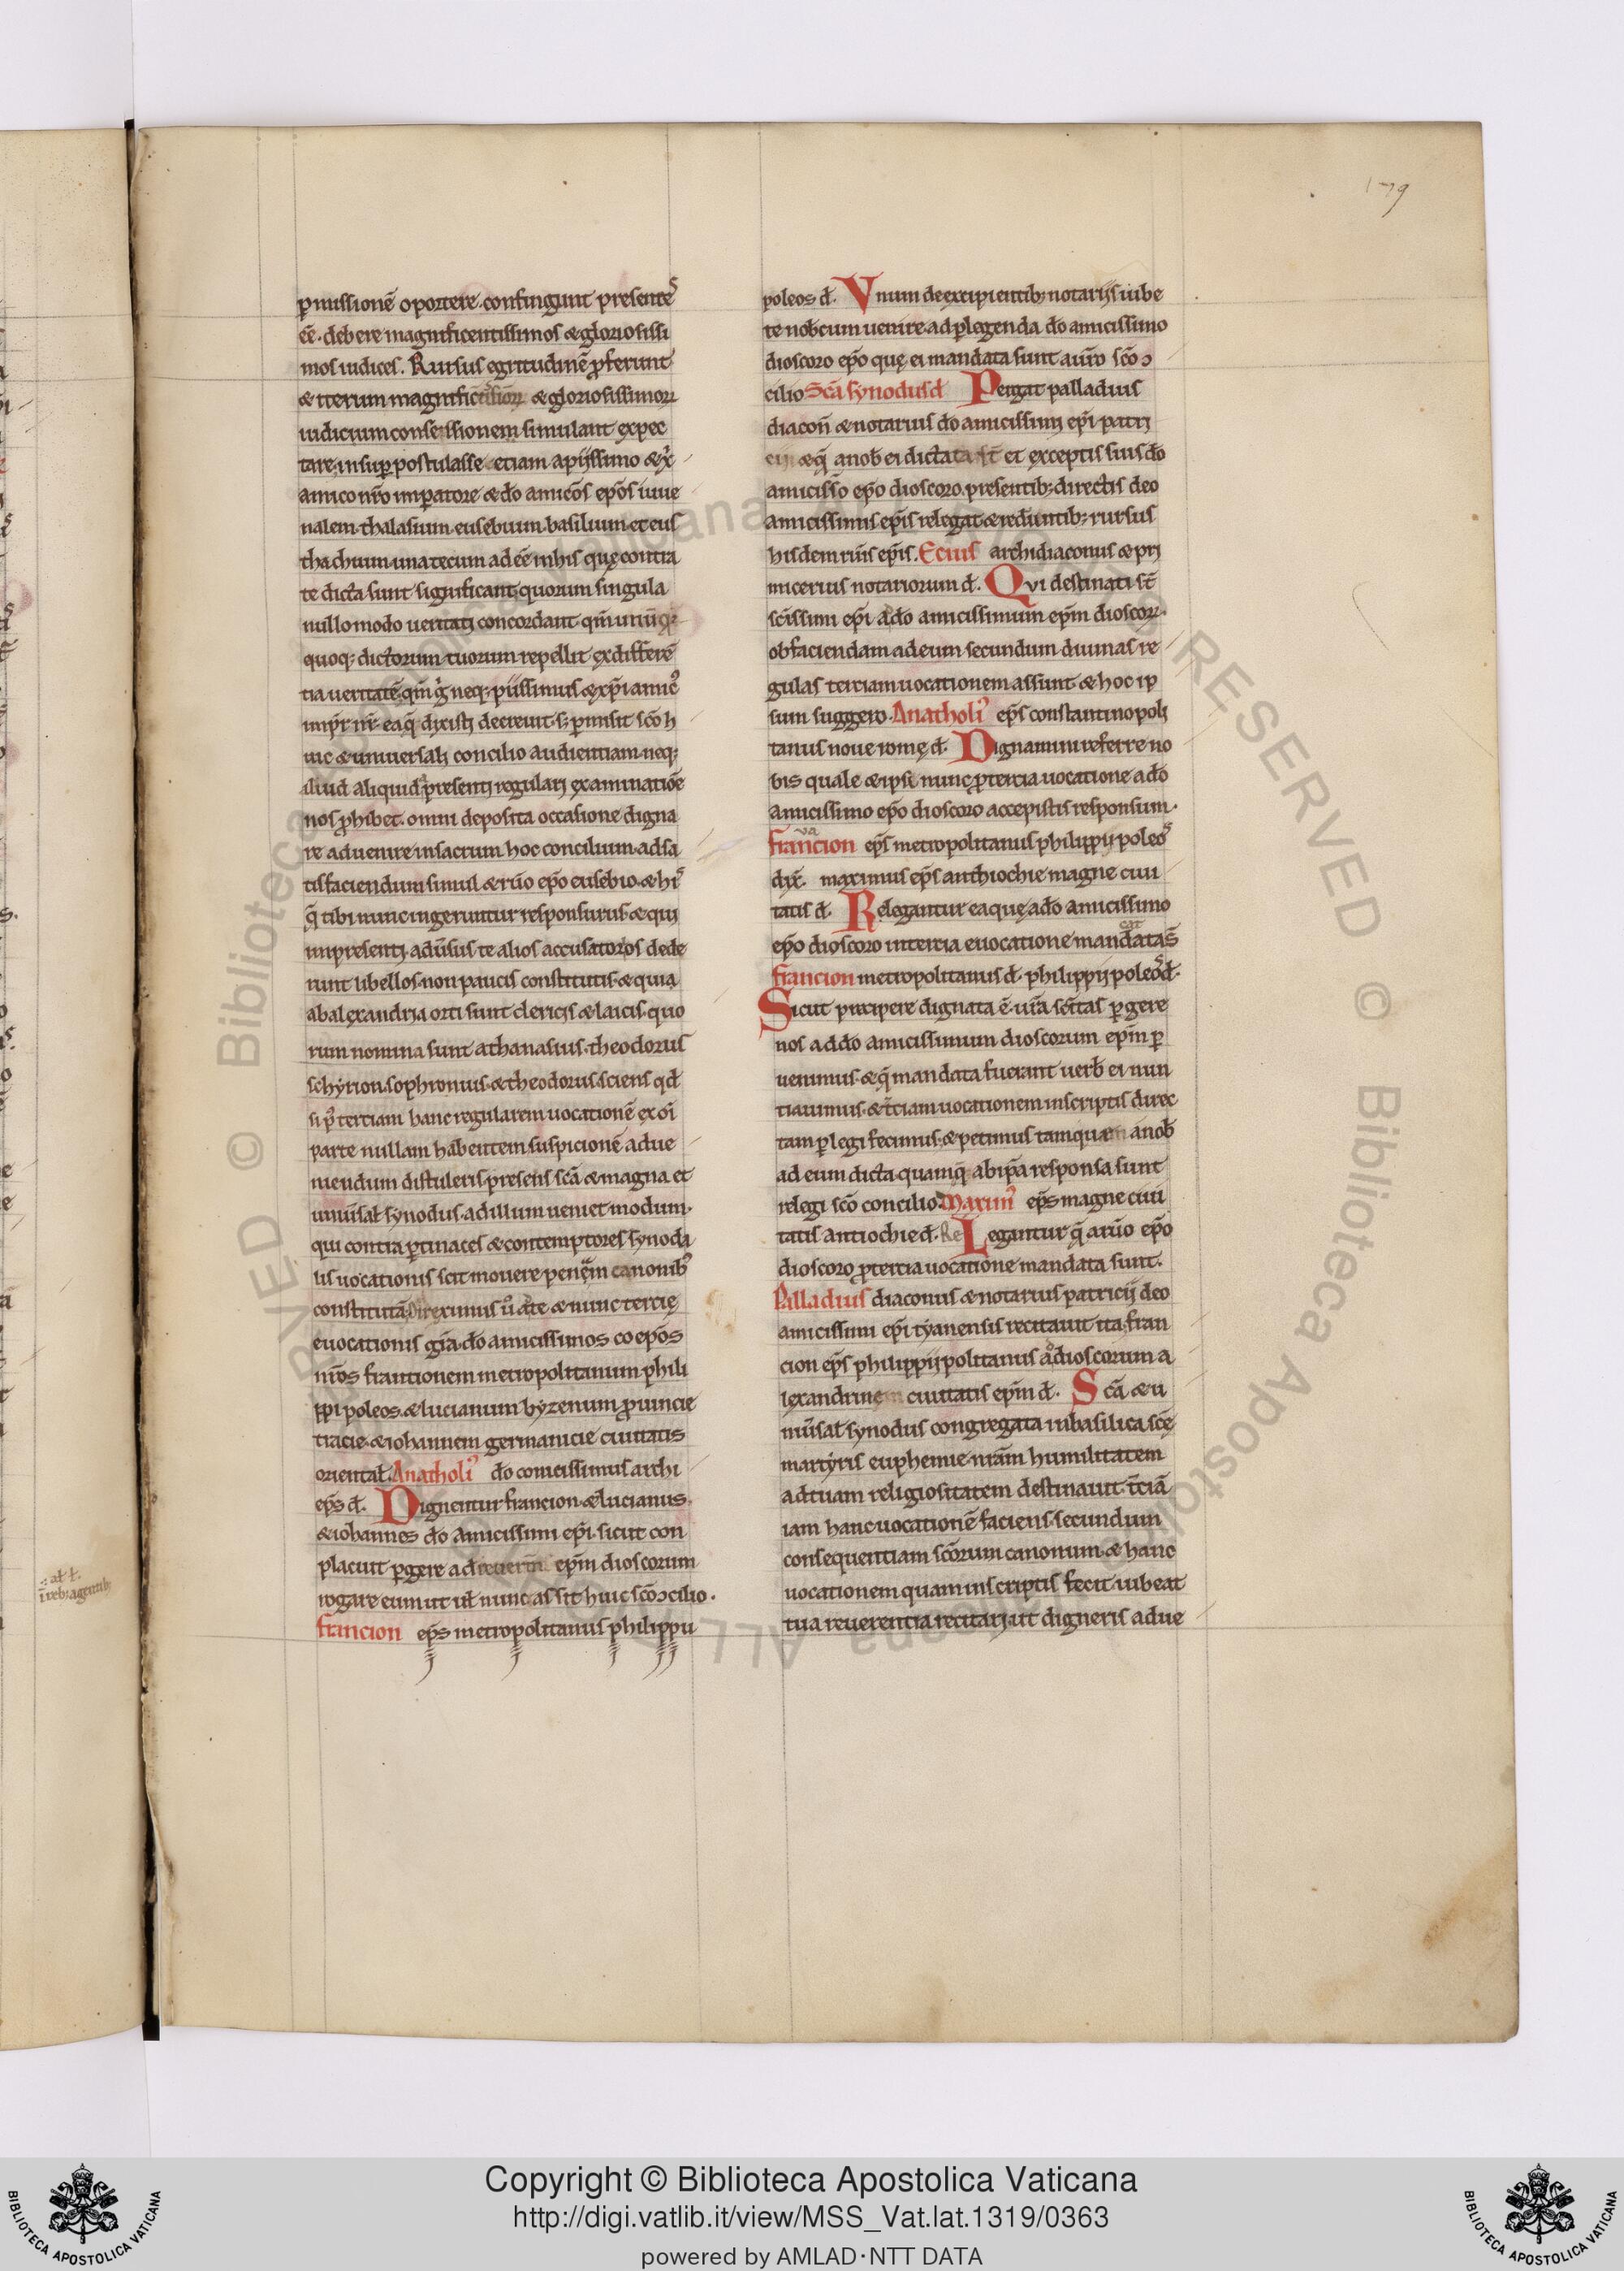 179
ꝑmissionē oportere. confingunt presente᷒
ēē. debere magnificentissimos & gloriosissi
mos iudices. Rursus egritudinē ꝓferunt
& iterum magnificentissimoꝝ & gloriosissimoꝝ
iudicium consessionem simulant expec
tare. insuꝑ postulasse etiam a piissimo & xp̄i
amico nr̄o imꝑatore & dō amicos ep̄os iuue
nalem. thalasium. eusebium. basilium. et eus
thachium una tecum adēē in his quę contra
te dicta sunt significant. quorum singula
nullo modo ueritati concordant qm̄ unūq̄
quoq; dictorum tuorum repellit ex differē
tia ueritatē. qm̄ g̊ neq; piissimus & xp̄i amic᷒
impr̄ nr̄ ea q̄ dixisti decreuit. s; ꝑmisit sc̄o h
uic & uniuersali concilio audientiam. neq;
illud aliquid presenti regulari examinatiōe
nos ꝓhibet. omni deposita occasione digna
re aduenire in sacrum hoc concilium. ad sa
tisfaciendum simul & rū̄o ep̄o eusebio. & his
q̄ tibi nunc ingeruntur responsurus. & qui
in presenti aduersus te alios accusatoros dede
runt libellos. non paucis constitutis. & quia
ab alexandria orti sunt clericis & laicis. quo
rum nomina sunt athanasius. theodorus
schyrion. sophronius. & theodorus. sciens qd̄
si ꝑ terciam hanc regularem uocationē ex oi
parte nullam habentem suspicionē adue
niendum distuleris. presens sc̄a & magna et
uniūsal' synodus. ad illum ueniet modum.
qui contra ꝑtinaces & contemptores synoda
lis uocationis scit mouere penē in canonib᷒
constitutā. direximus ū ad te & nunc tercię
euocationis gr̄a. dō amicissimos coep̄os
nr̄os frantionem metropolitanum phili
ppi poleos. & lucianum byzenum ꝓuincie
tracie. & iohannem germanicie ciuitatis
oriental'. Anatholi᷒ dō comicissimus archi
ep̄s d̄. Dignentur francion & lucianus.
& iohannes dō amicissimi ep̄i. sicut con
placuit ꝑgere ad reuerm̄ ep̄m dioscorum
rogare eum ut uł nunc assit huic sc̄o ↄcilio.
francion ep̄s metropolitanus philippu
poleos d̄. Vnum de excipientib; notarijs iube
te nob̄cum uenire. ad ꝑlegenda dō amicissimo
dioscoro ep̄o quę ei mandata sunt a ur̄o sc̄o ↄ
cilio Sc̄a synodus d̄ Pergat palladius
diacon̄ & notarius dō amicissimi ep̄i patri
cij. & q̄ a nob̄ ei dictata st̄ et exceptis suis dō
amicisso ep̄o dioscoro. presentib; directis deo
amicissimis ep̄is relegat & redeuntib; rursus
hisdem rū̄is ep̄is. Ecius archidiaconus & pri
micerius notariorum d̄. Qvi destinati st̄
sc̄issimi ep̄i ad dō amicissimum ep̄m dioscoꝝ.
ob faciendam ad eum secundum diuinas re
gulas terciam uocationem assunt & hoc ip
sum suggero. Anatholi᷒ ep̄s constantinopoli
tanus noue romę d̄. Dignamini referre no
bis quale & ipsi nunc ꝓ tercia uocatione a dō
amicissimo ep̄o dioscoro accepistis responsum.
va
francion ep̄s metropolitanus philippij poleo᷒
dix̄. maximus ep̄s anthiochie magne ciui
tatis d̄. Relegantur ea quę a dō amicissimo
ep̄o dioscoro in tercia euocatione mandatas̄
francion metropolitanus d̄. philippij poleo᷒ d̄.
Sicut precipere dignata ē ur̄a sc̄itas ꝑgere
nos ad dō amicissimum dioscorum ep̄m ꝑ
uenimus. & q̄ mandata fuerant uerb̄ ei nun
tiauimus. & t̄ciam uocationem in scriptis direc
tam ꝑlegi fecimus. & petimus tam qua a nob̄
ad eum dicta. quamq̄ ab ip̄a responsa sunt
relegi sc̄o concilio Maxim᷒ ep̄s magne ciui
tatis antiochie d̄. Re Legantur q̄ a rū̄o ep̄o
dioscoro ꝓ tercia uocatione mandata sunt.
Palladius diaconus & notarius patricij deo
amicissimi ep̄i tyanensis recitauit ita. fran
cion ep̄s philippij politanus ad dioscorum a
lexandrine ciuitatis ep̄m d̄. Sc̄a & u
niūsal' synodus congregata in basilica sc̄ę
martyris euphemie. nr̄am humilitatem
ad tuam religiositatem destinauit. t̄ciā
iam hanc uocationē faciens. secundum
consequentiam sc̄orum canonum. & hanc
uocationem quam in scriptis fecit iubeat
tua reuerentia recitari. ut digneris adue
Copyright © Biblioteca Apostolica Vaticana
http://digi.vatlib.it/view/MSS_Vat.lat.1319/0363
powered by AMLAD·NTT DATA
BIBLIOTECA APOSTOLICA VATICANA
BIBLIOTECA APOSTOLICA VATICANA